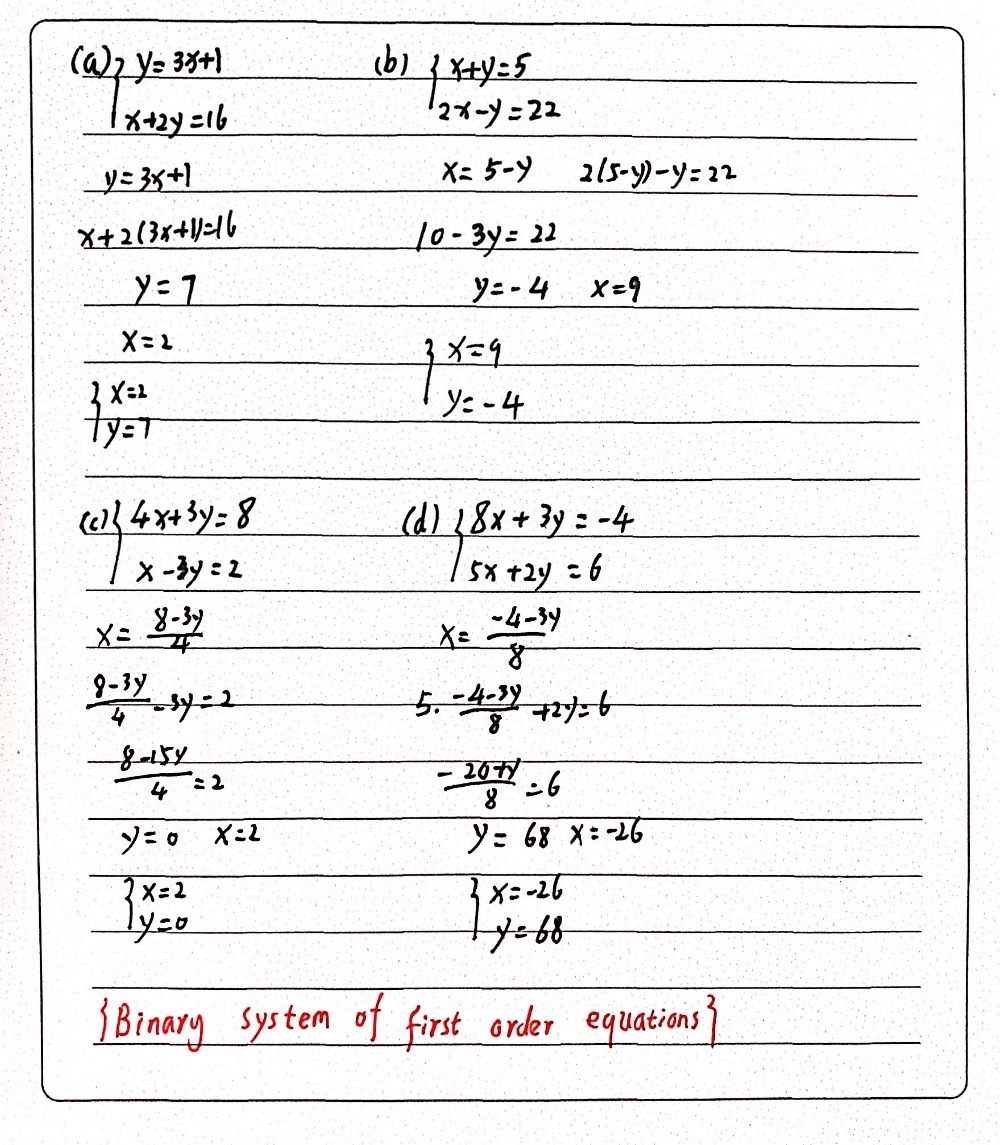 (a) { y = 3x+1
x+2y = 16
y = 3x+1
x+2(3x+1)=16
y = 7
x = 2
{ x=2
y=7
(b) { x+y=5
2x-y=22
x = 5-y 2(5-y)-y=22
10-3y=22
y=-4 x=9
{ x=9
y=-4
(c) { 4x+3y=8
x-3y=2
x = \frac{8-3y}{4}
\frac{8-3y}{4} -3y=2
\frac{8-15y}{4} =2
y=0 x=2
{ x=2
y=0
(d) { 8x+3y=-4
5x+2y=6
x = \frac{-4-3y}{8}
5·\frac{-4-3y}{8} +2y=6
\frac{-20+y}{8} =6
y=68 x=-26
{ x=-26
y=68
{Binary system of first order equations}